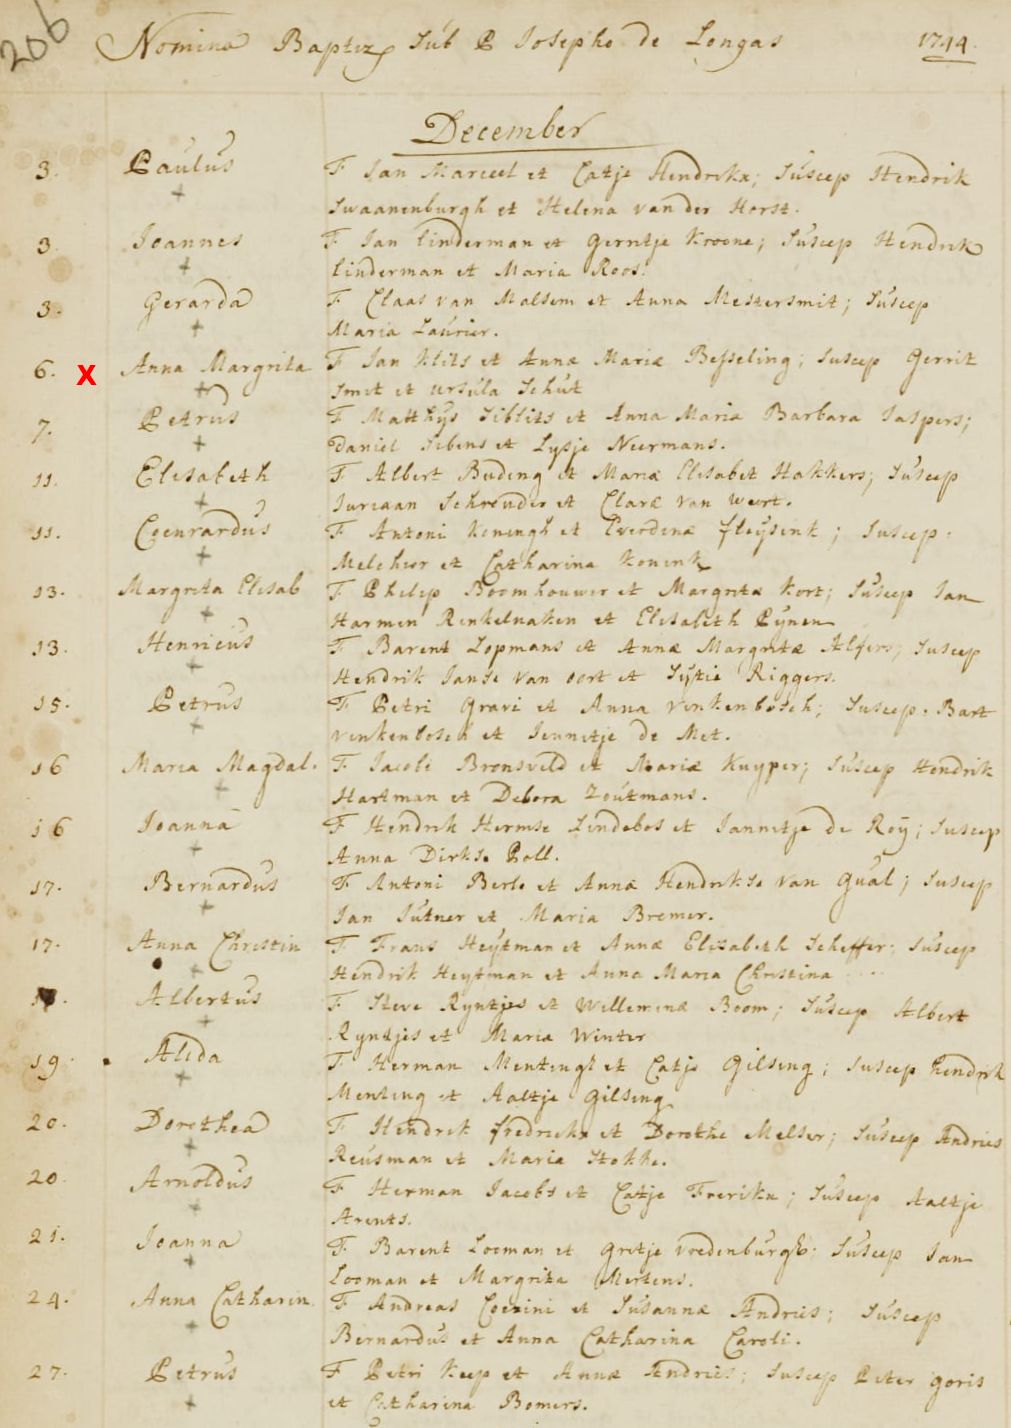 206
Nomina Baptiz Sub P Josepho de Longas 1744.
December
3. Paulus F Jan Marceel et Catje Hendrikx; Suscep Hendrik
Swaanenburgh et Helena van der Horst.
3 Joannes F Jan linderman et Gerntje Kroone; Suscep Hendrik
linderman et Maria Roos.
3. Gerarda F Claas van Malsem et Anna Mestersmit; Suscep
Maria Laurier.
6. X Anna Margrita F Jan Klits et Annæ Mariæ Besseling; Suscep Gerrit
Smit et Ursula Schut
7. Petrus F Matthijs Siblits et Anna Maria Barbara Jaspers;
Daniel Sibens et Lysje Neermans.
11. Elisabeth F Albert Buding et Mariæ Elisabet Hakkers; Suscep
Juriaan Schreuder et Claræ van Weert.
11. Coenrardus F Antoni Koningh et Everdinæ fleysink; Suscep.
Melchior et Catharina Konink
13. Margrita Elisab F Philip Boomhouwer et Margritæ Kort; Suscep Jan
Harmen Renkelnaken et Elisabeth Pynen
13. Henricus F Barent Lopmans et Annæ Margritæ Alfers; Suscep
Hendrik Janse van oort et Sytie Riggers.
15. Petrus F Petri Gravi et Anna Venkenbosch; Suscep. Bart
venkenbosch et Jennetje de Met.
16 Maria Magdal. F Jacobi Bronsveld et Mariæ Kuyper; Suscep Hendrik
Hartman et Debora Zoutmans.
16 Joanna F Hendrik Hermse Lindebos et Jannetje de Roy; Suscep
Anna Dirkse Poll.
17. Bernardus F Antoni Berle et Annæ Hendrikse van Gual; Suscep
Jan Sutner et Maria Bremer.
17. Anna Christin F Frans Heytman et Annæ Elisabeth Scheffer; Suscep
Hendrik Heytman et Anna Maria Christina
Albertus F Steve Ryntjes et Willeminæ Boom; Suscep Albert
Ryntjes et Maria Winter
19. Alida F Herman Mentingh et Catje Gilsing; Suscep hendrik
Menting et Aaltje Gilsing
20. Dorothea F Hendrik fredrickx et Dorothe Melser; Suscep Andries
Reusman et Maria Stokke.
20. Arnoldus F Herman Jacobs et Catje Frerikx; Suscep Aaltje
Arents.
21. Joanna F Barent Looman et Gretje Voedenburgh; Suscep Jan
Looman et Margrita Mertens.
24. Anna Catharin. F Andreas Coezini et Susannæ Andries; Suscep
Bernardus et Anna Catharina Caroli.
27. Petrus F Petri Keep et Annæ Andries; Suscep Peter Goris
et Catharina Bomers.